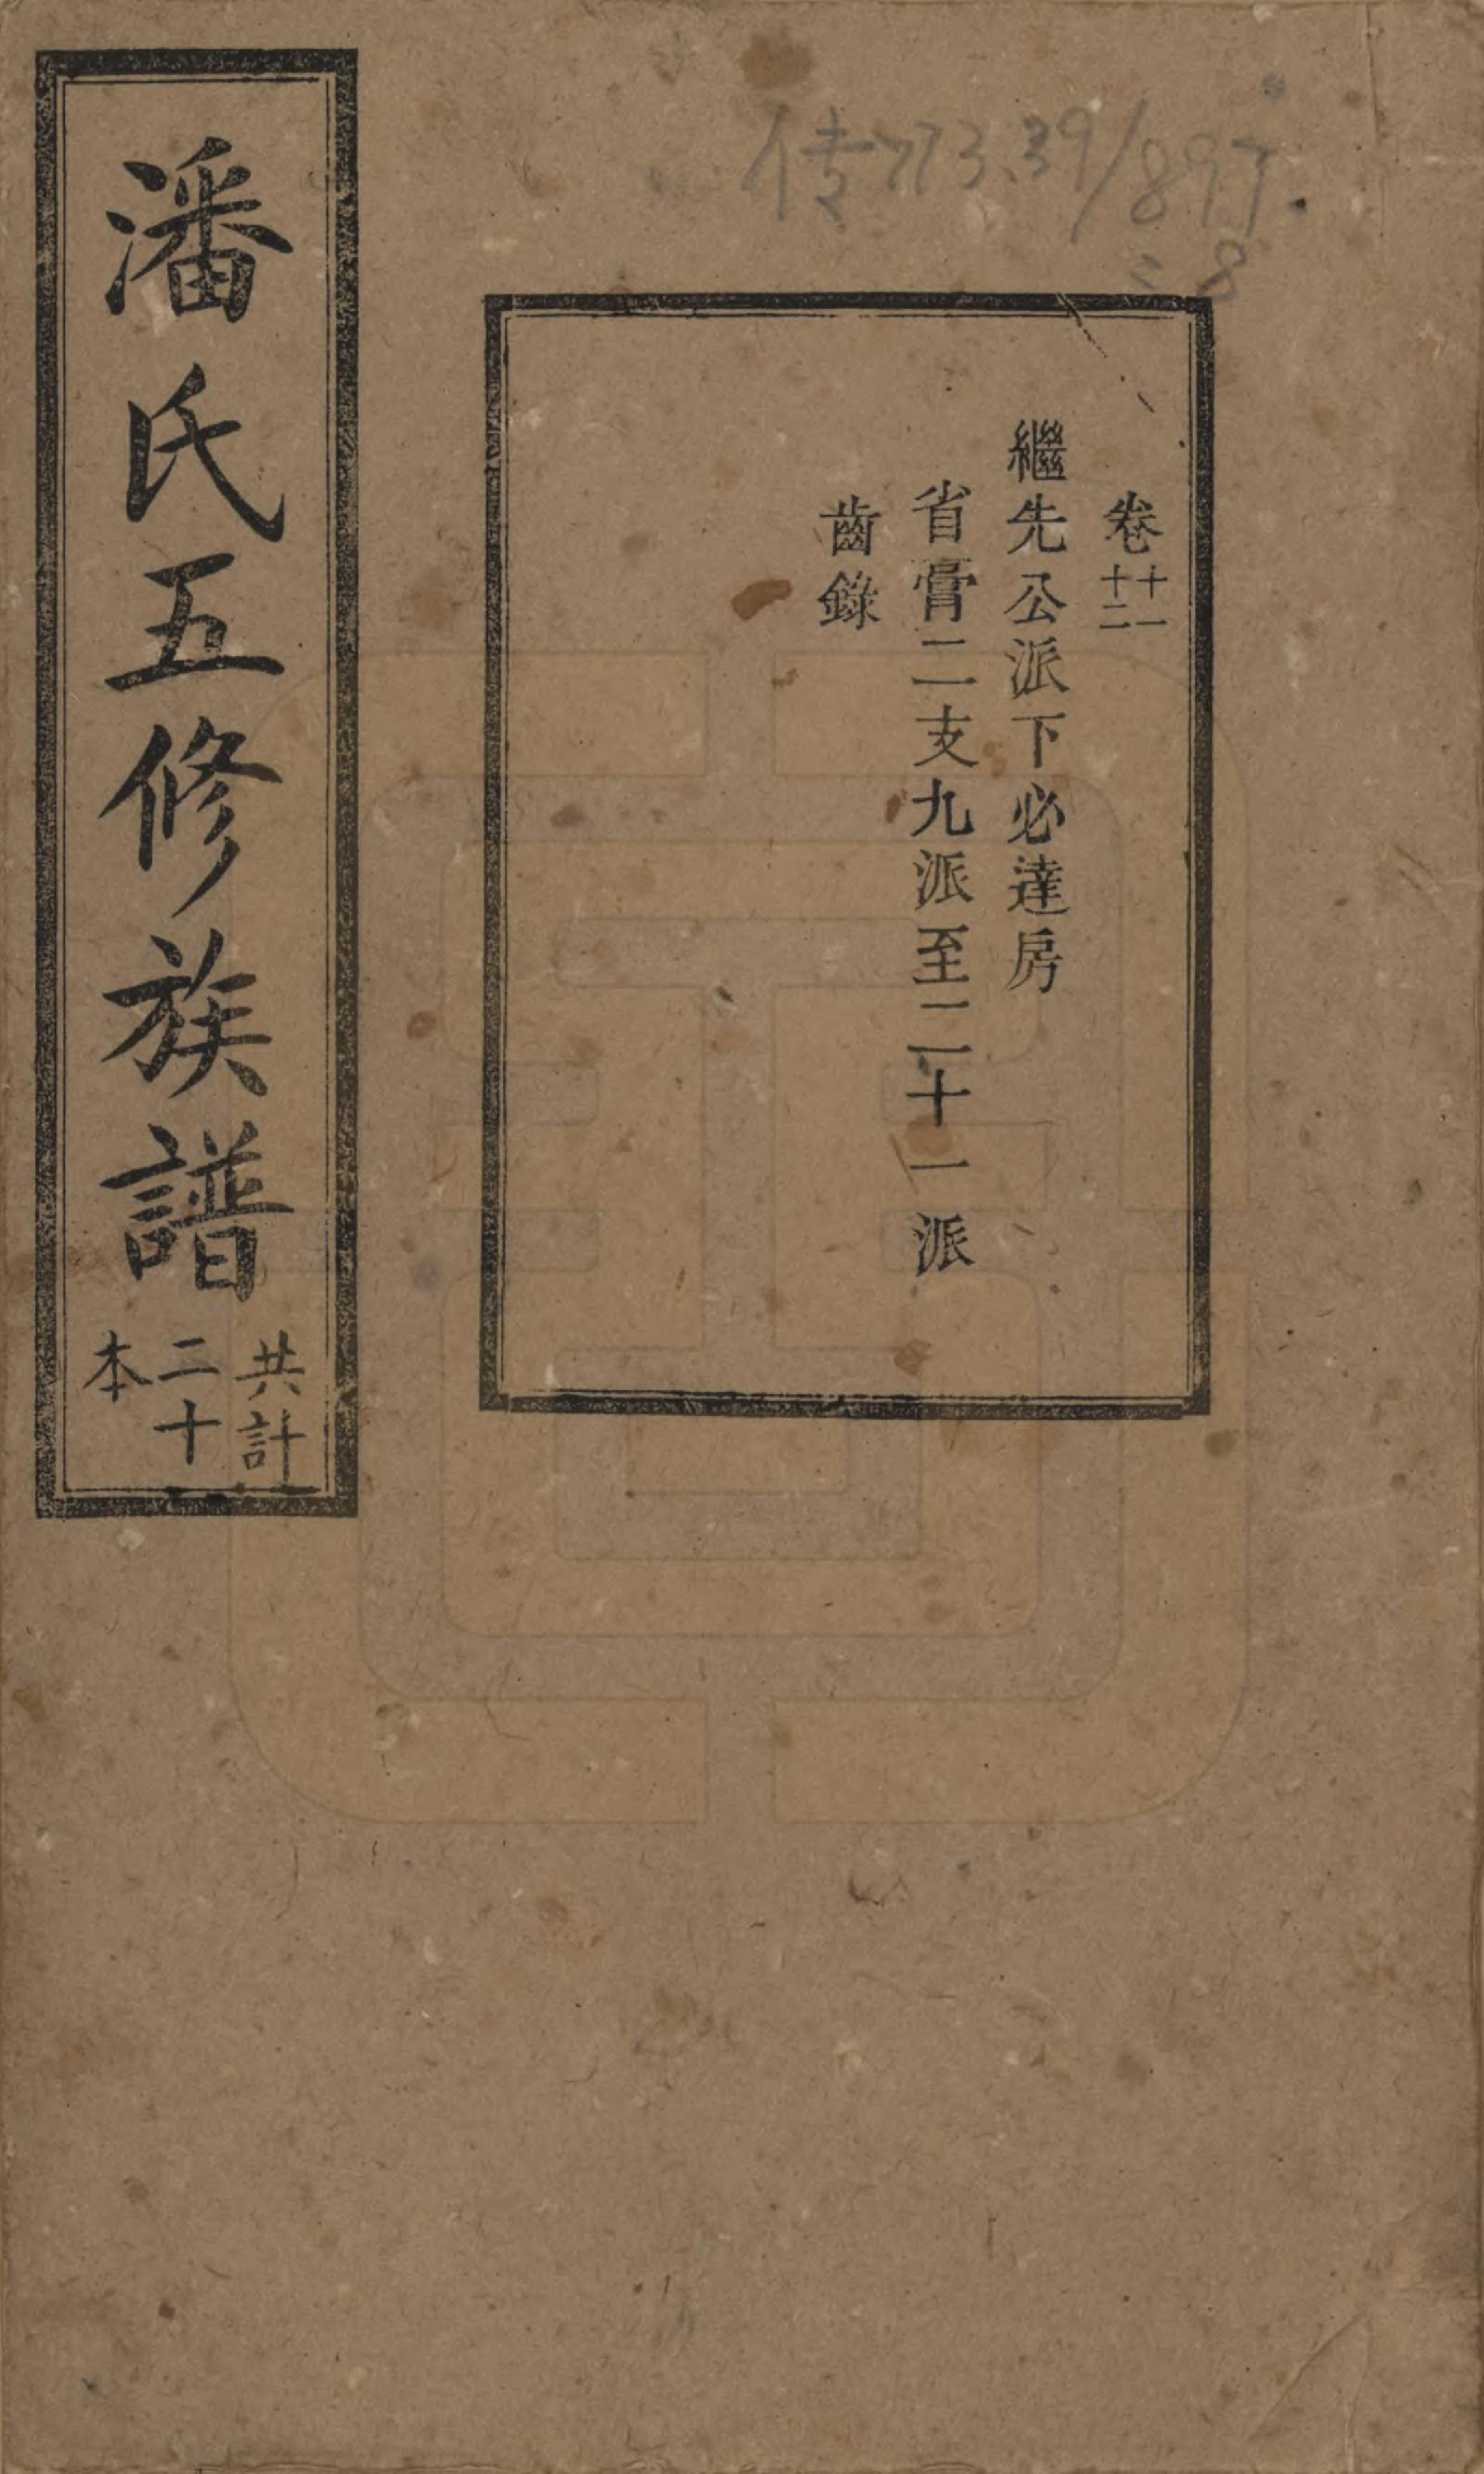 传773.39/897
:8
卷十一十二
繼先公派下必達房
省膏二支九派至二十一派
齒錄
潘氏五修族譜
共計
二十
本